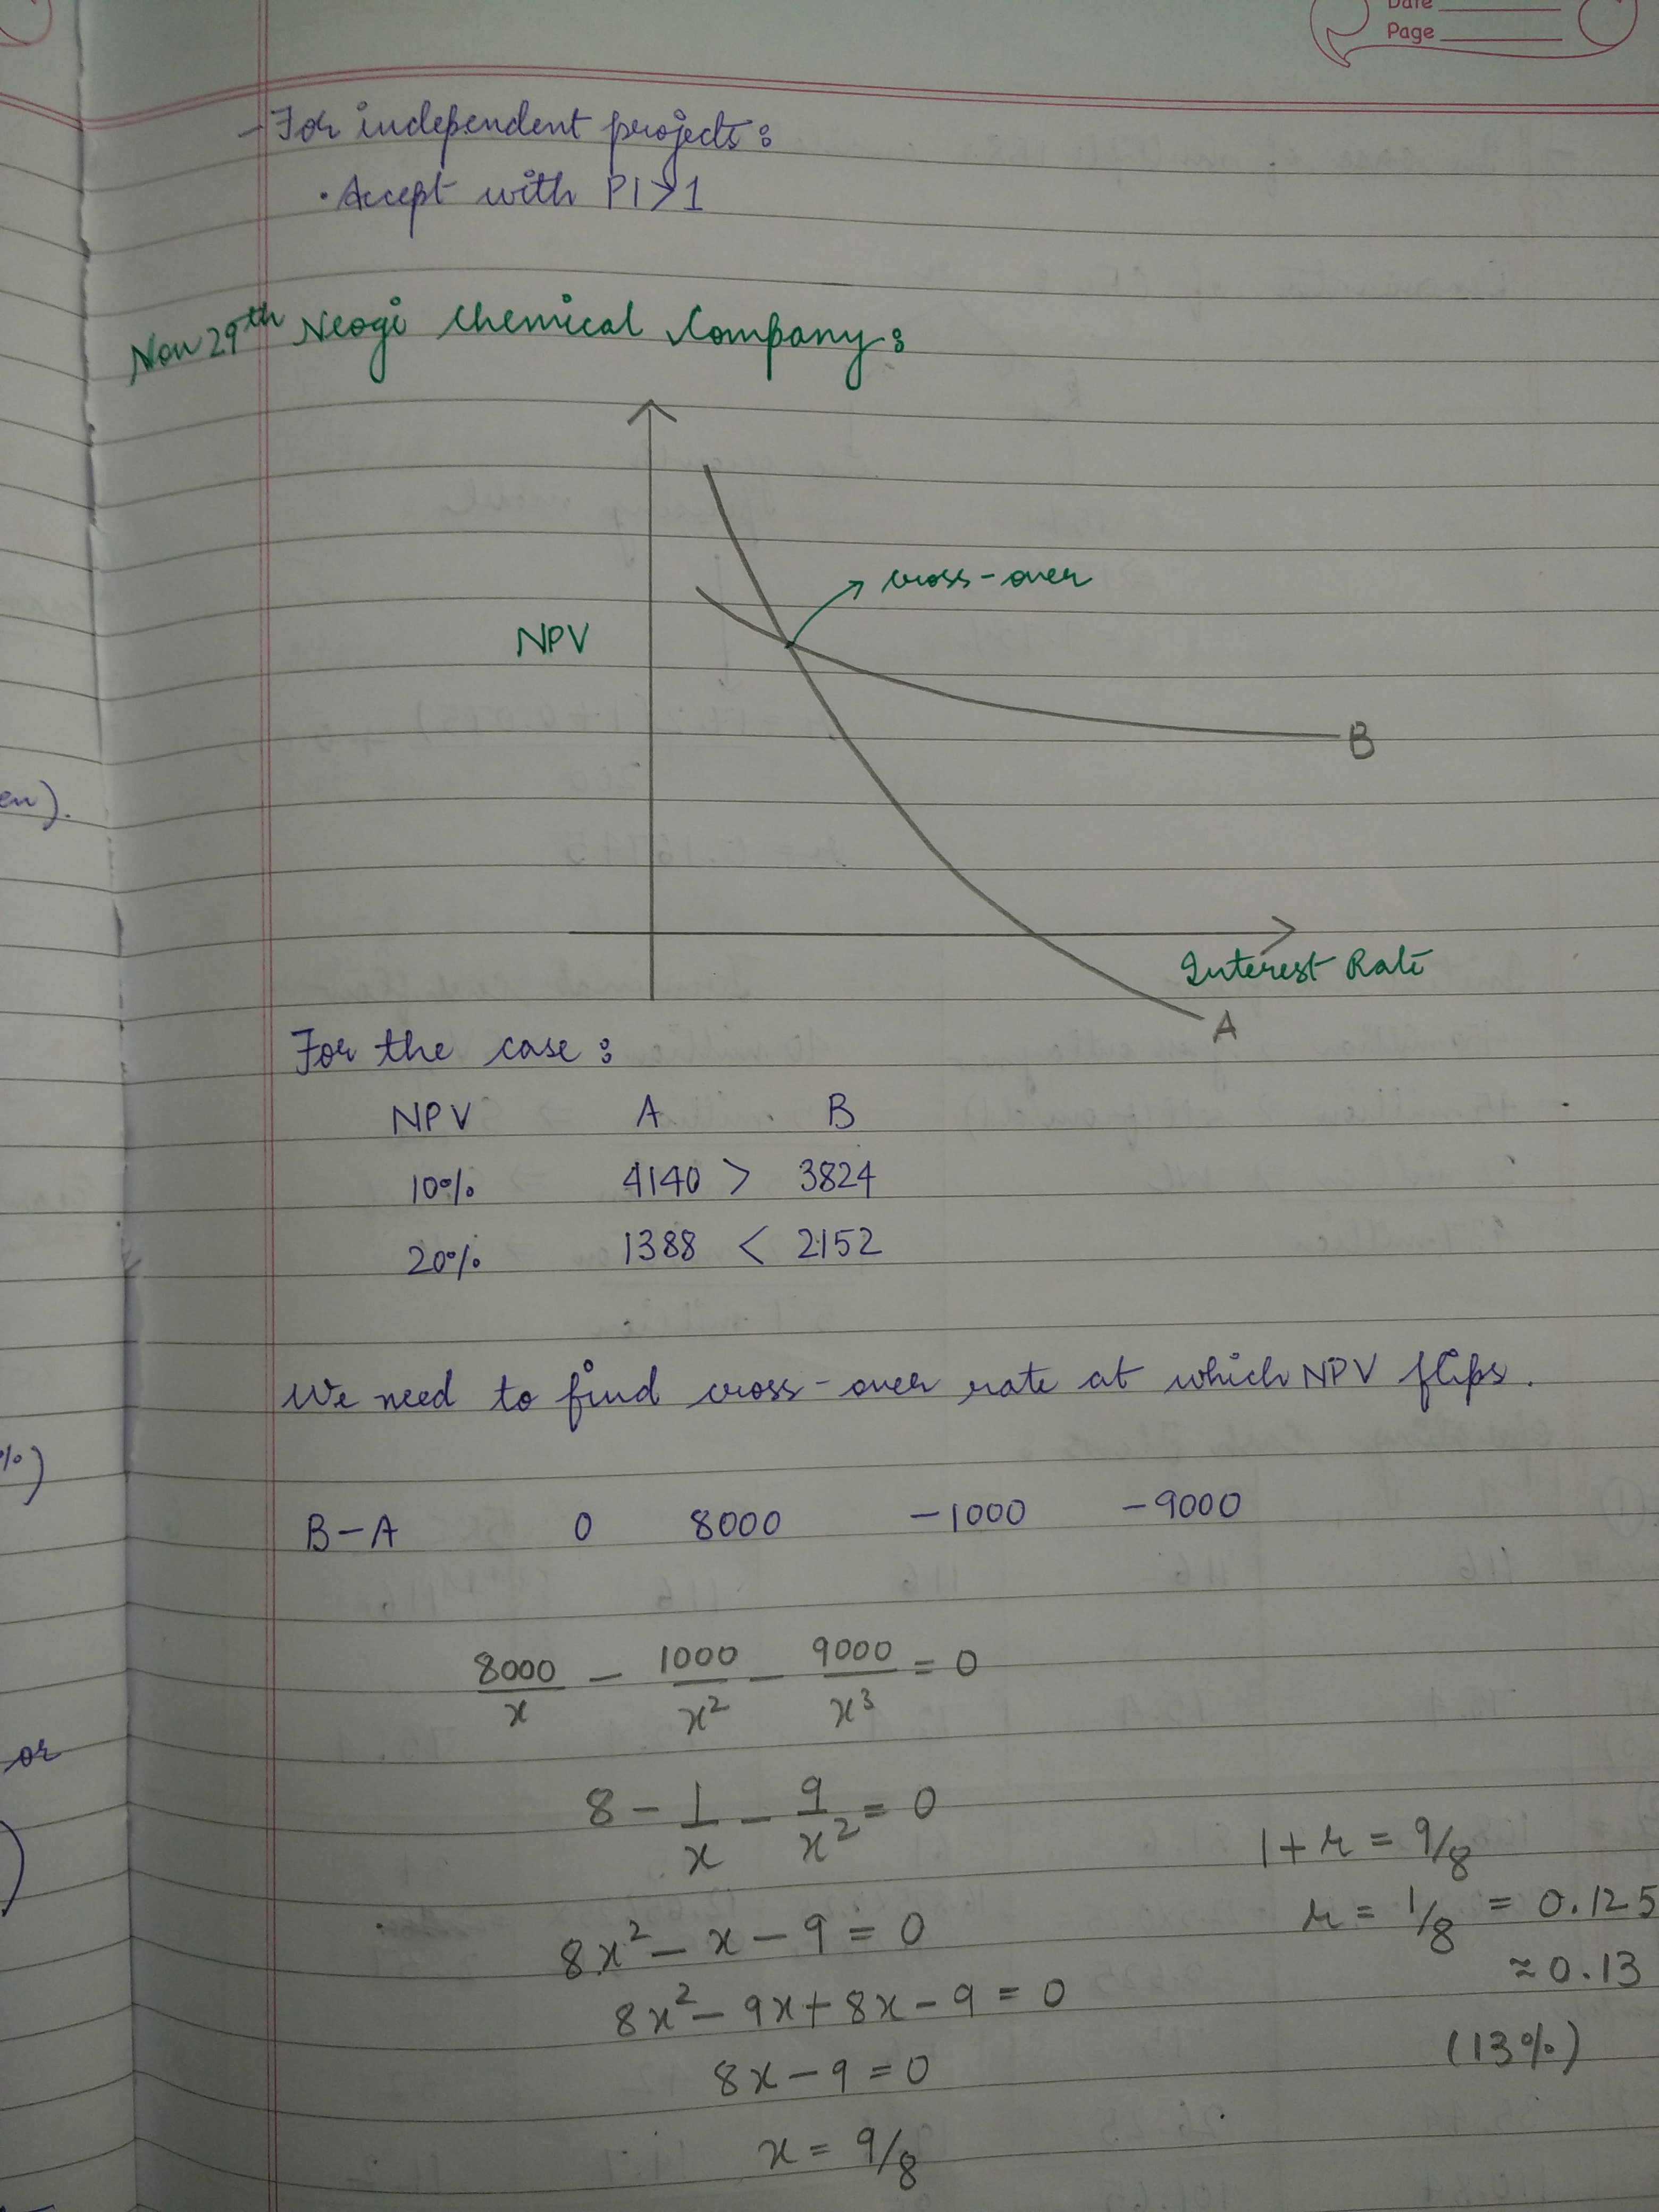 Date
Page
- For independent projects:
• Accept with PI>1
Nov 29th Neogi Chemical Company:
cross-over
NPV
B
Interest Rate
A
For the case:
NPV A B
10% 4140 > 3824
20% 1388 < 2152
en).
We need to find cross-over rate at which NPV flips.
%)
B-A 0 8000 -1000 -9000
8000/x - 1000/x² - 9000/x³ = 0
or
8 - 1/x - 9/x² = 0
1+r = 9/8
r = 1/8 = 0.125
8x² - x - 9 = 0
≈0.13
8x² - 9x + 8x - 9 = 0
(13%)
8x - 9 = 0
x = 9/8